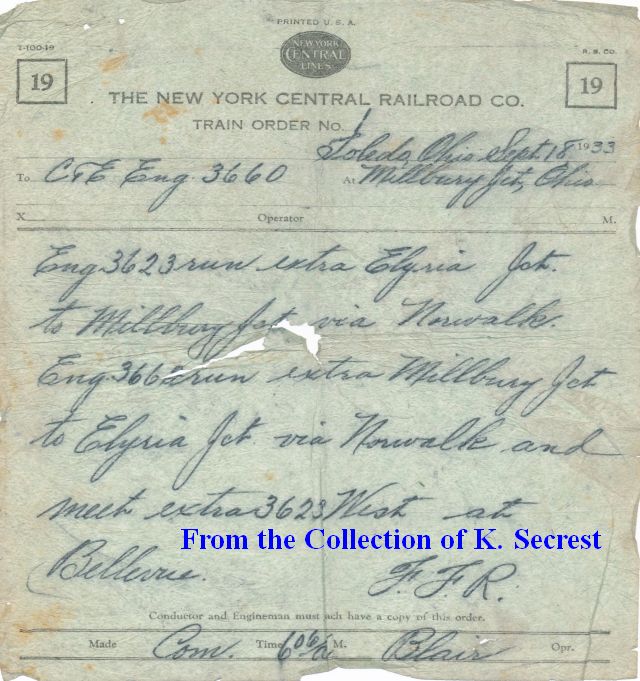 PRINTED U. S. A.
T-100-19
NEW YORK
CENTRAL
LINES
R. S. CO.
19
19
THE NEW YORK CENTRAL RAILROAD CO.
TRAIN ORDER No. 1
Toledo, Ohio Sept. 18 1933
To C&E Eng 3660 At Millbury Jct, Ohio
X Operator M.
Eng 3623 run extra Elyria Jct.
to Millbury Jct via Norwalk.
Eng 3660 run extra Millbury Jct
to Elyria Jct. via Norwalk and
meet extra 3623 West at
Bellevue. F. F. R.
From the Collection of K. Secrest
Conductor and Engineman must each have a copy of this order.
Made Com. Time M. Blair Opr.